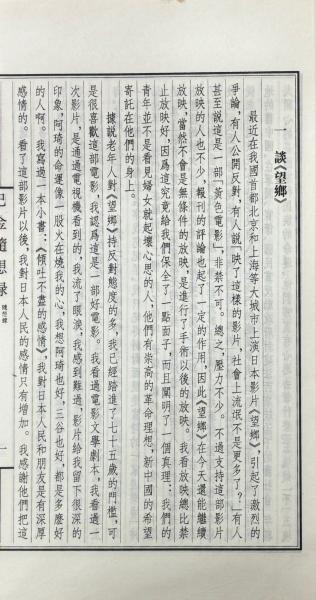 一　談《望鄉》
最近在我國首都北京和上海等大城市上演日本影片《望鄉》，引起了激烈的
爭論，有人公開反對，有人說「映了這樣的影片，社會上流氓不是更多了？」有人
甚至說這是一部「黃色電影」，非禁不可。總之，壓力不少。不過支持這部影片
放映的人也不少，報刊的評論也起了一定的作用，因此《望鄉》在今天還能繼續
放映，當然不會是無條件的放映，是進行了手術以後的放映。我看放映總比禁
止放映好，因爲這究竟給我們保全了一點面子，而且闡明了一個真理：我們的
青年並不是看見婦女就起壞心思的人，他們有崇高的革命理想，新中國的希望
寄託在他們的身上。
據說老年人對《望鄉》持反對態度的多，我已經踏進了七十五歲的門檻，可
是很喜歡這部電影，我認爲這是一部好電影。我看過電影文學劇本，我看過一
次影片，是通過電視機看到的，我流了眼淚，我感到難過，影片給我留下很深的
印象，阿琦的命運像一股火在燒我的心，我想阿琦也好，三谷也好，都是多麼好
的人啊。我寫過一本小書：《傾吐不盡的感情》，我對日本人民和朋友是有深厚
感情的。看了這部影片以後，我對日本人民的感情只有增加。我感謝他們把這
巴金隨想錄
隨想錄
一